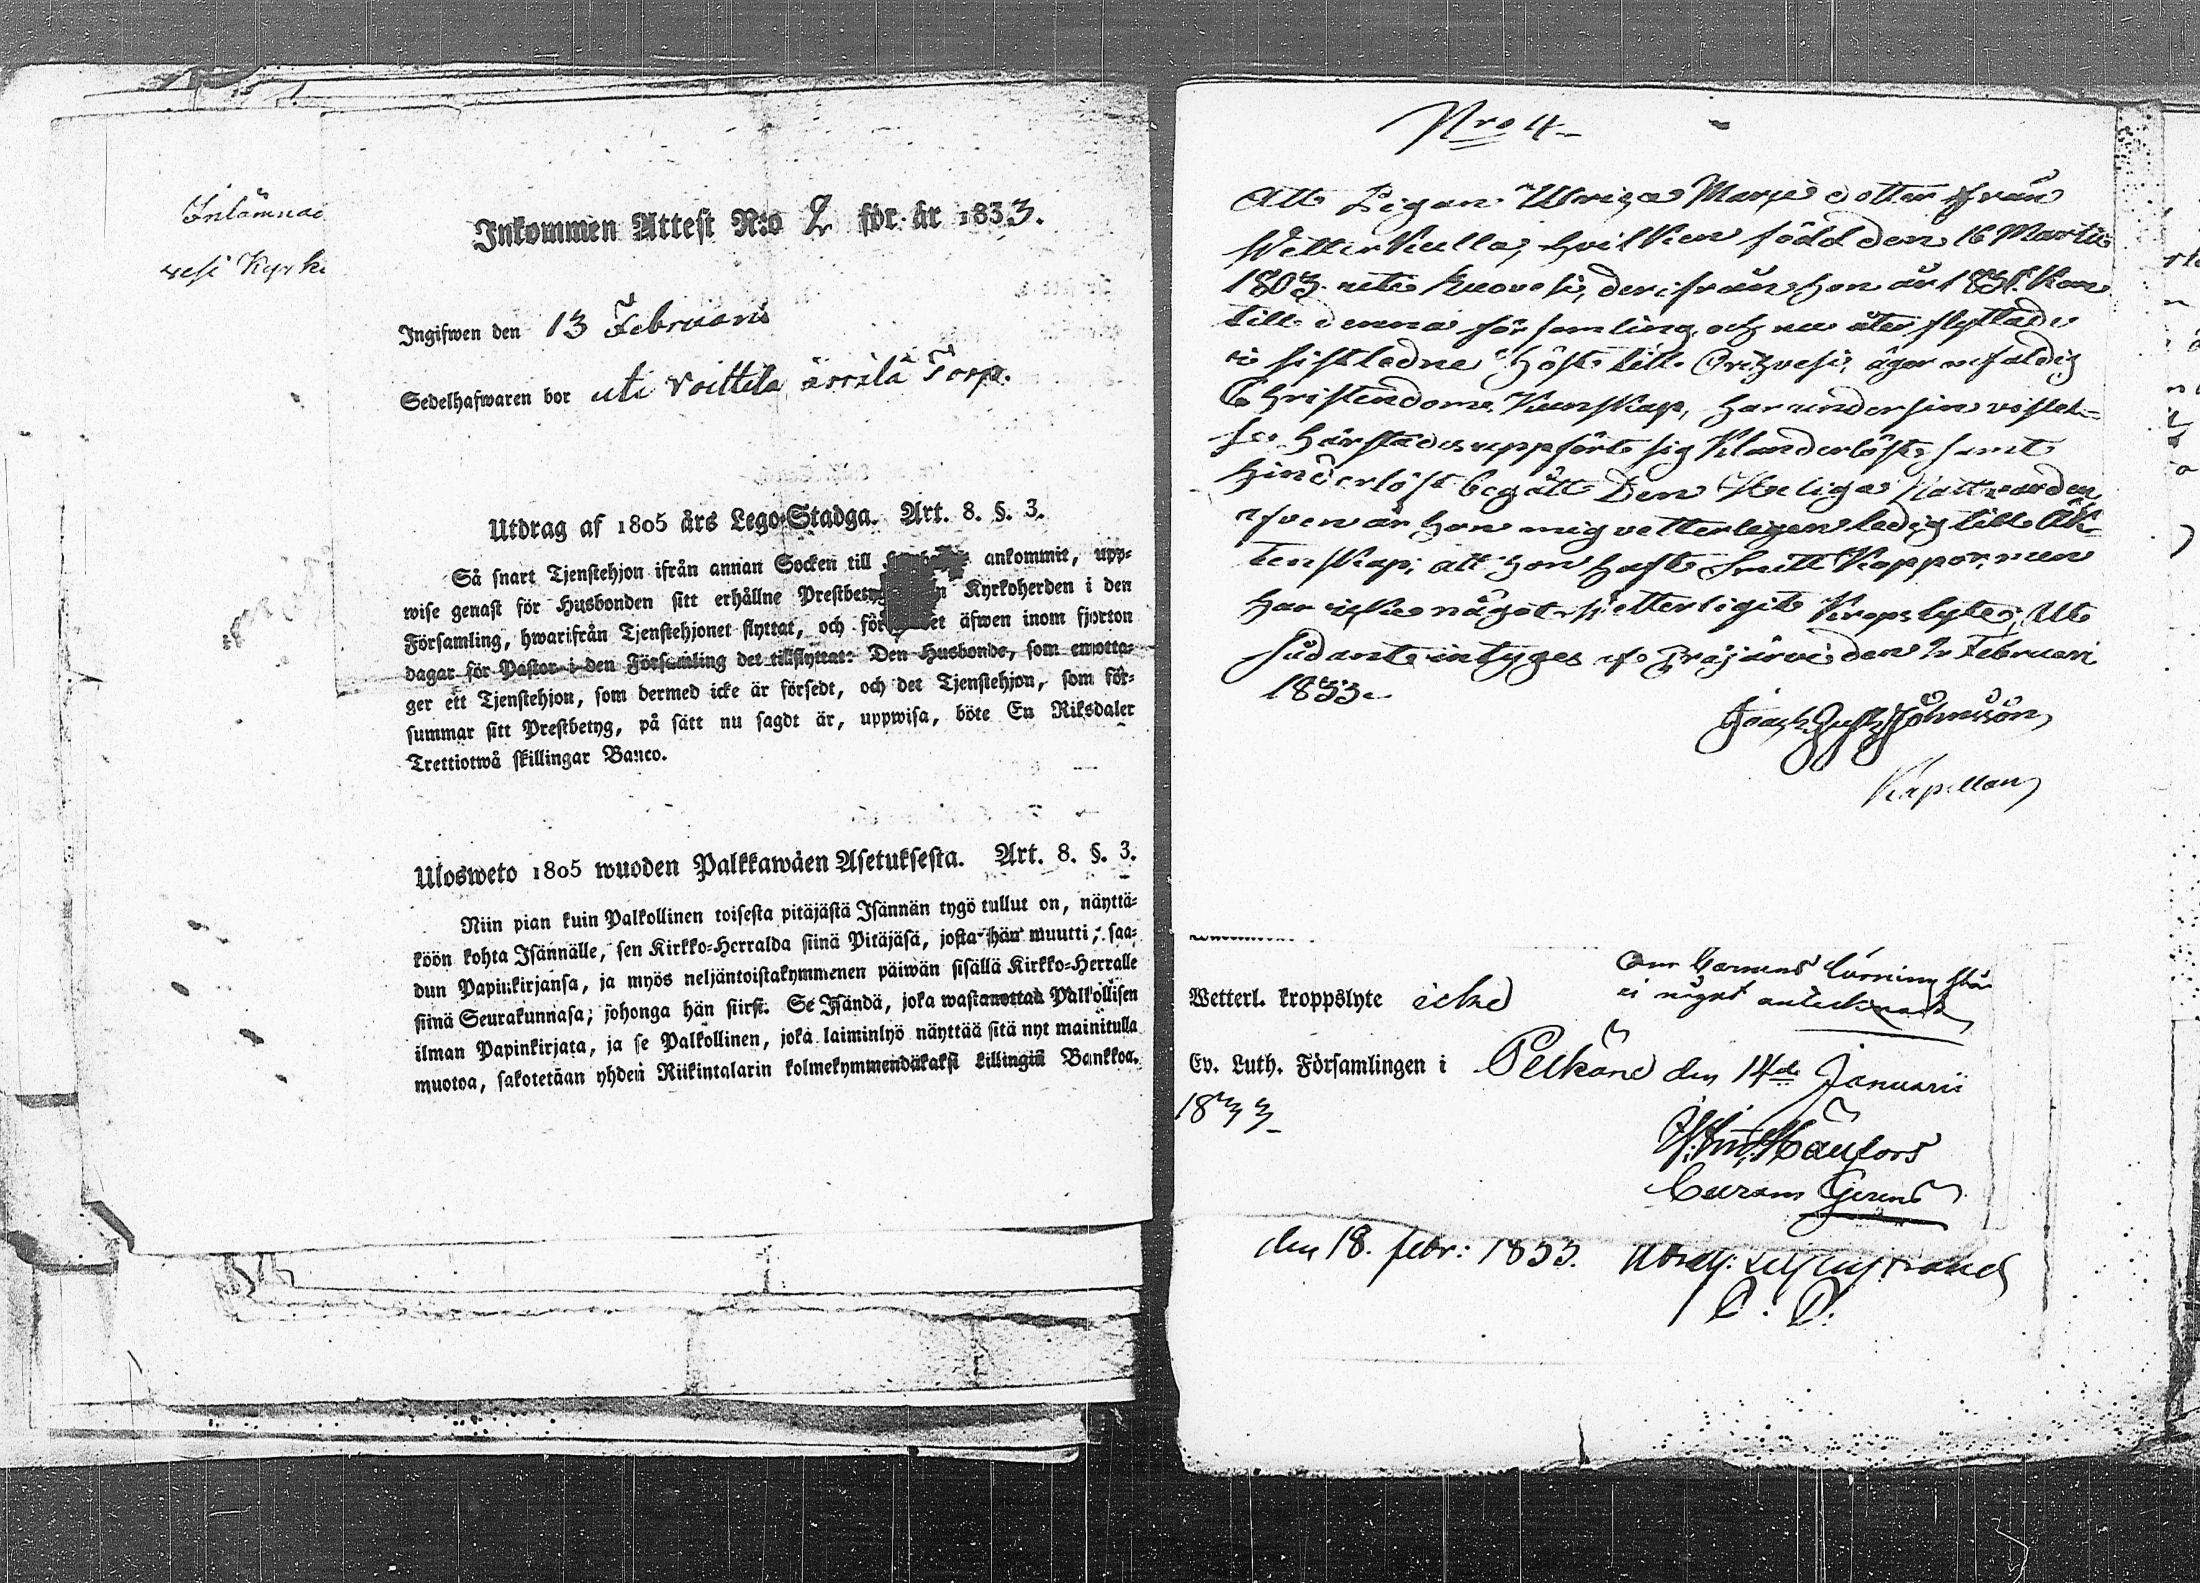 Inlämnad
vesi Kyrko
Inkommen Attest N:o 2 för år 1833.
Ingifwen den 13 Februarii
Sedelhafwaren bor uti Voittila Torp.
Utdrag af 1805 års Lego-Stadga. Art. 8. §. 3.
Så snart Tjenstehjon ifrån annan Socken till ankommit, upp-
wise genast för Husbonden sitt erhållne Prestbetyg Kyrkoherden i den
Församling, hwarifrån Tjenstehjonet flyttat, och äfwen inom fjorton
dagar för Pastor i den Församling det tillflyttat: Den Husbonde, som emotta-
ger ett Tjenstehjon, som dermed icke är försedt, och det Tjenstehjon, som för-
summar sitt Prestbetyg, på sätt nu sagdt är, uppwisa, böte En Riksdaler
Trettiotwå skillingar Banco.
Ulosweto 1805 wuoden Palkkawäen Asetuksesta. Art. 8. §. 3.
Niin pian kuin Palkollinen toisesta pitäjästä Isännän tygö tullut on, näyttä-
köön kohta Isännälle, sen Kirkko-Herralda siinä Pitäjäsä, josta hän muutti, saa-
dun Papinkirjansa, ja myös neljäntoistakymmenen päiwän sisällä Kirkko-Herralle
siinä Seurakunnasa, johonga hän siirst. Se Isändä, joka wastanottaa Palkollisen
ilman Papinkirjata, ja se Palkollinen, joka laiminlyö näyttää sitä nyt mainitulla
muotoa, sakotetaan yhden Riikintalarin kolmekymmendäkaksi killingiä Bankkoa.
Nro 4
Att Pigan Ulrica Marje dotter ifrån
Vetterkulla, hvilken född den 16 Martii
1803 uti Ruovesi, derifrån hon år 1831 kom
till denna församling och nu åter flyttade
i sistledne Höst till Orihvesi, äger enfaldig
Christendoms Kunskap, har under sin vistel-
se härstädes uppfört sig klanderlöst, samt
hinderlöst begått Den Heliga Nattvarden,
äfven är hon mig vetterligen ledig till Äk-
tenskap; att hon haft Smitt Koppor, men
har icke något vetterligit Kropslyte; Ut
sådant intygas af Eräjärvi den 2 Februari
1833.
Johnsson,
Kapellan
Wetterl. kroppslyte icke
Om barnens läsning står
ei något antecknadt
Ev. Luth. Församlingen i Pelkäne den 14de Januarii
1833
Curam Gerens
den 18. febr: 1833.